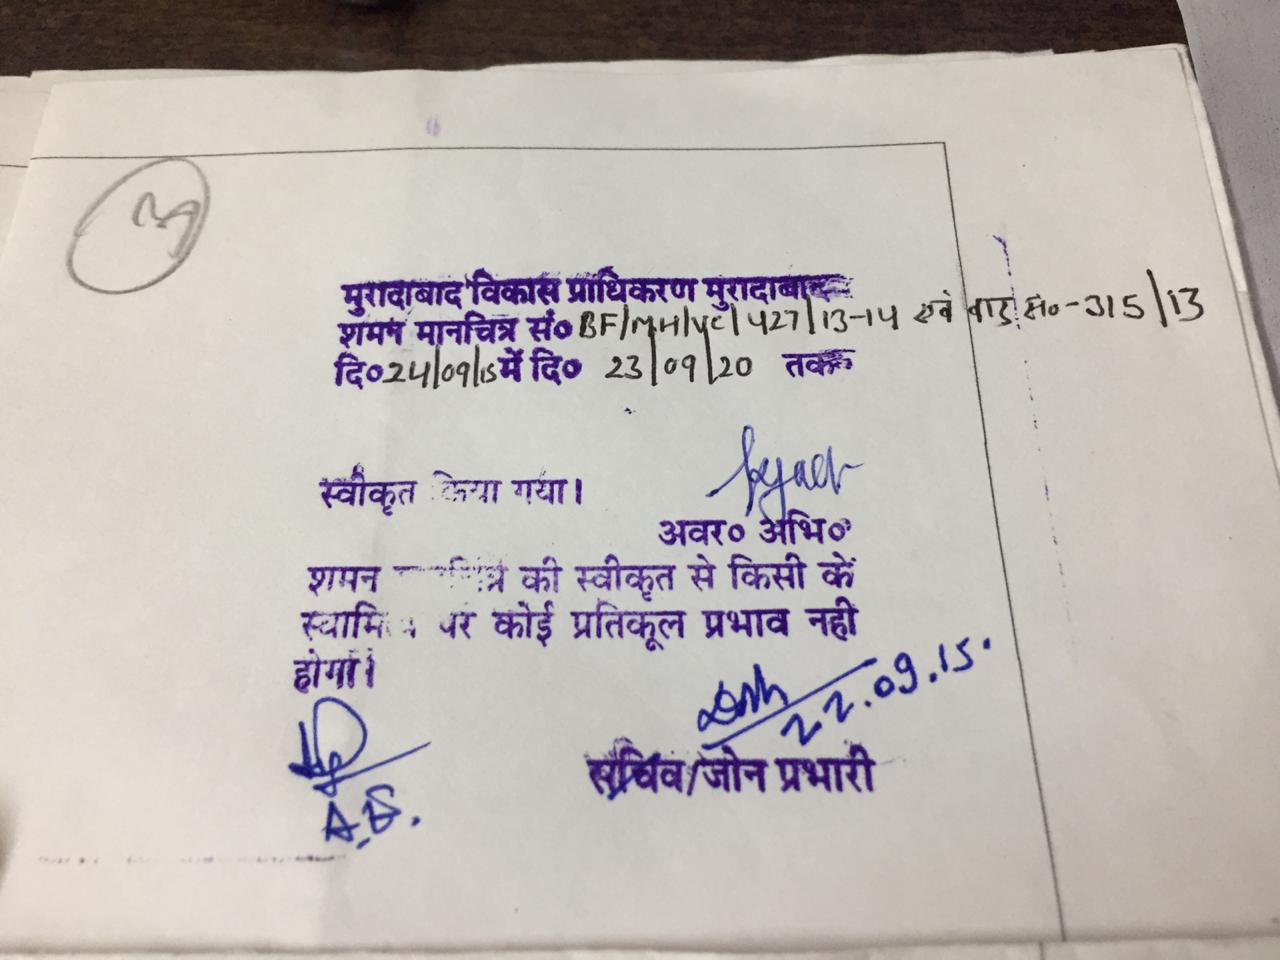 3
मुरादाबाद विकास प्राधिकरण मुरादाबाद
शमन मानचित्र सं० BF/MH/VC/427/13-14 एवं वाद सं०-315/13
दि० 24/09/15 में दि० 23/09/20 तक
स्वीकृत किया गया।
अवर० अभि०
शमन मानचित्र की स्वीकृत से किसी कें
स्वामित्व पर कोई प्रतिकूल प्रभाव नही
होगा।
22.09.15.
सचिव/जोन प्रभारी
A.E.